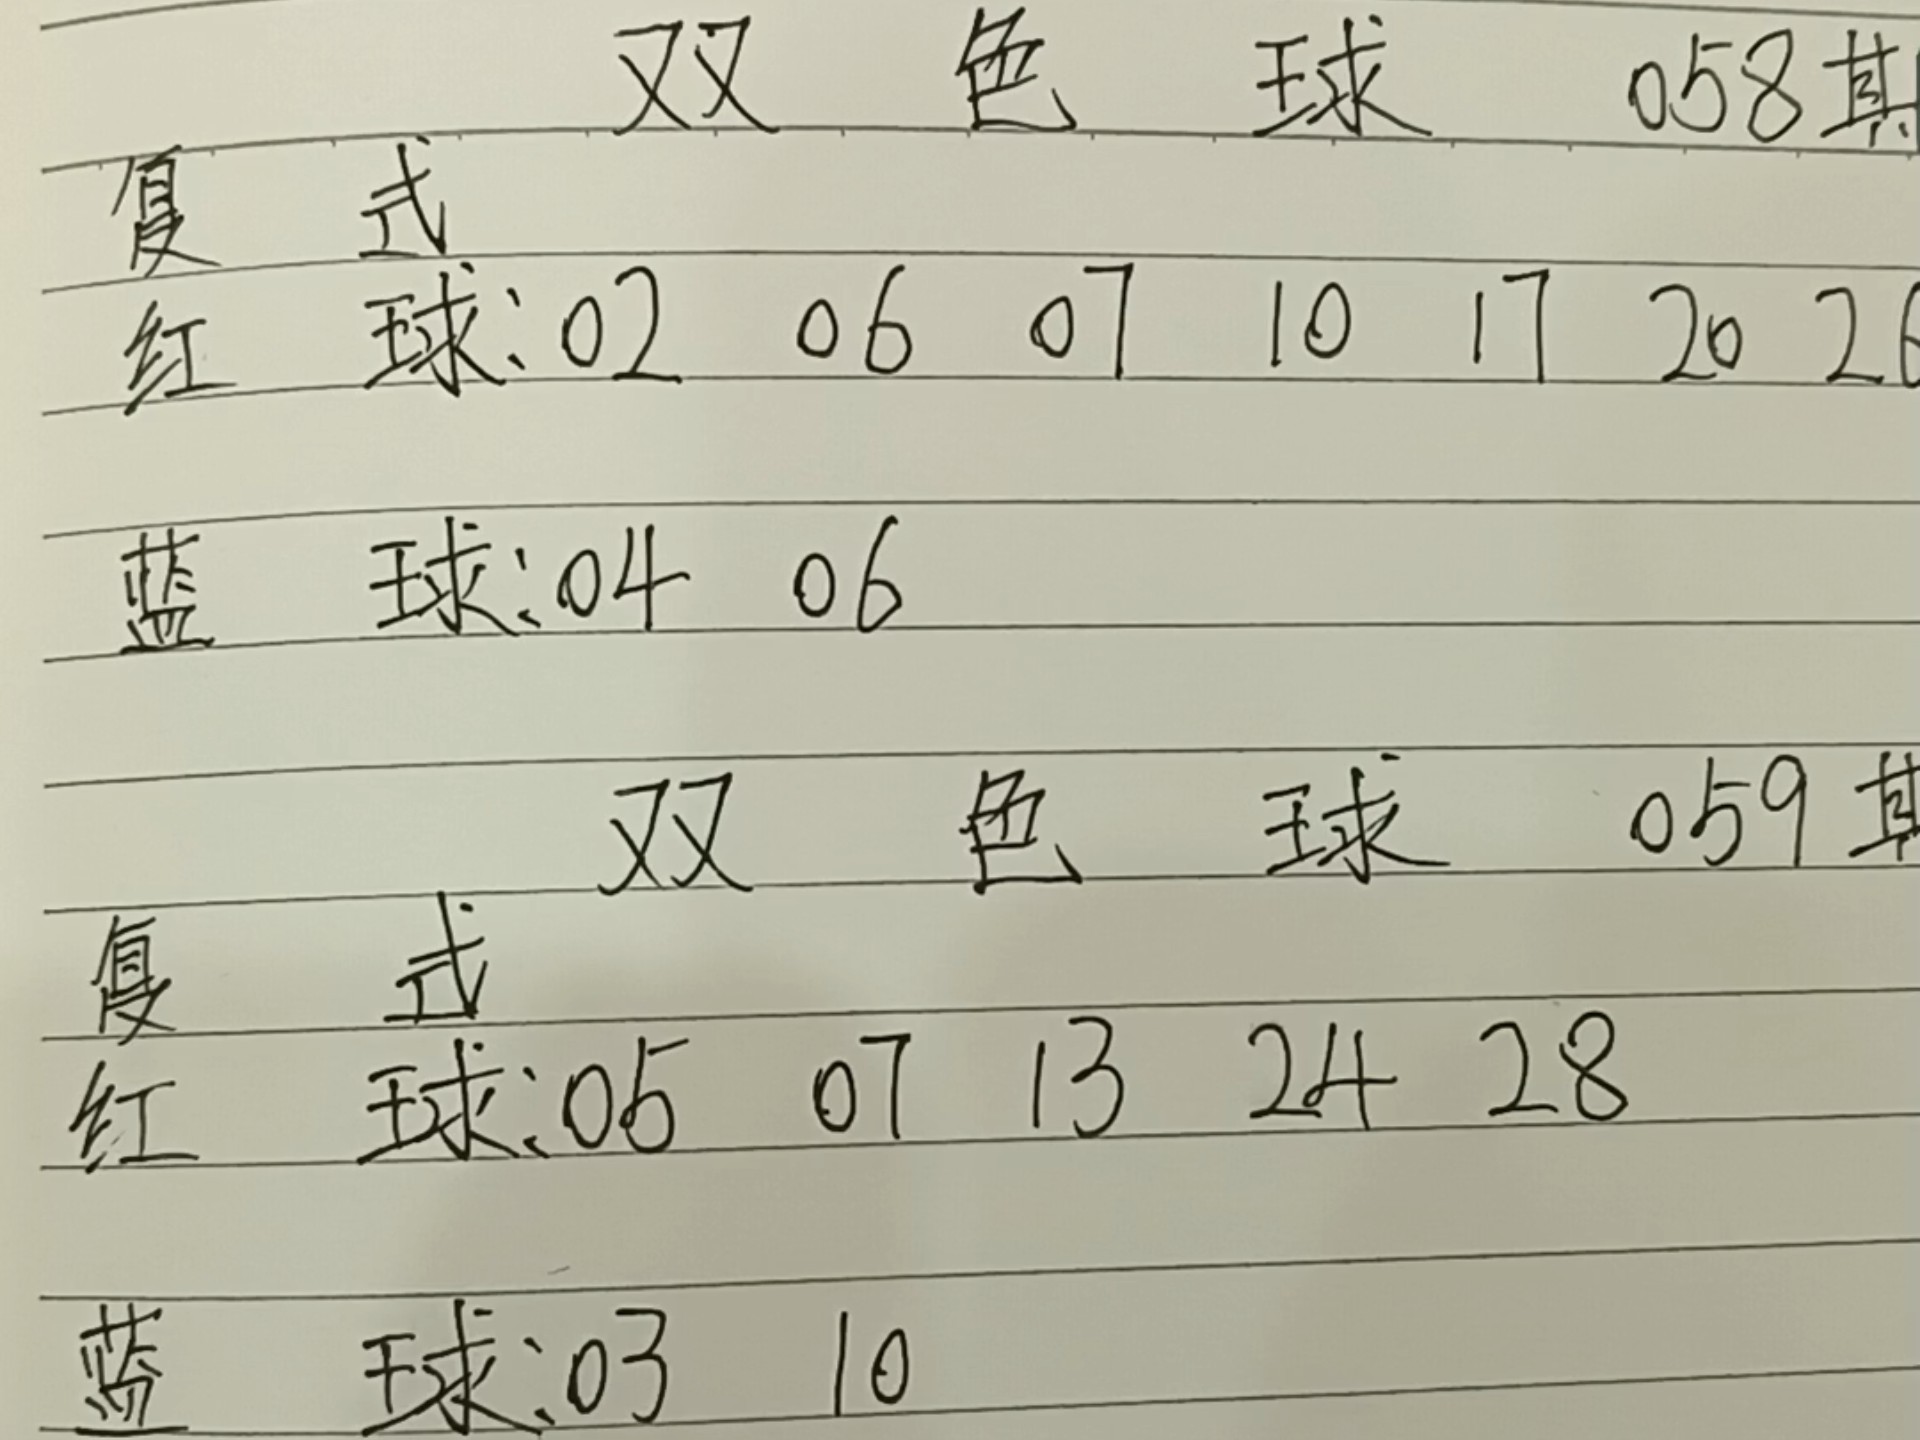 双色球 058期
复式
红球:02 06 07 10 17 20 26
蓝球:04 06
双色球 059期
复式
红球:05 07 13 24 28
蓝球:03 10